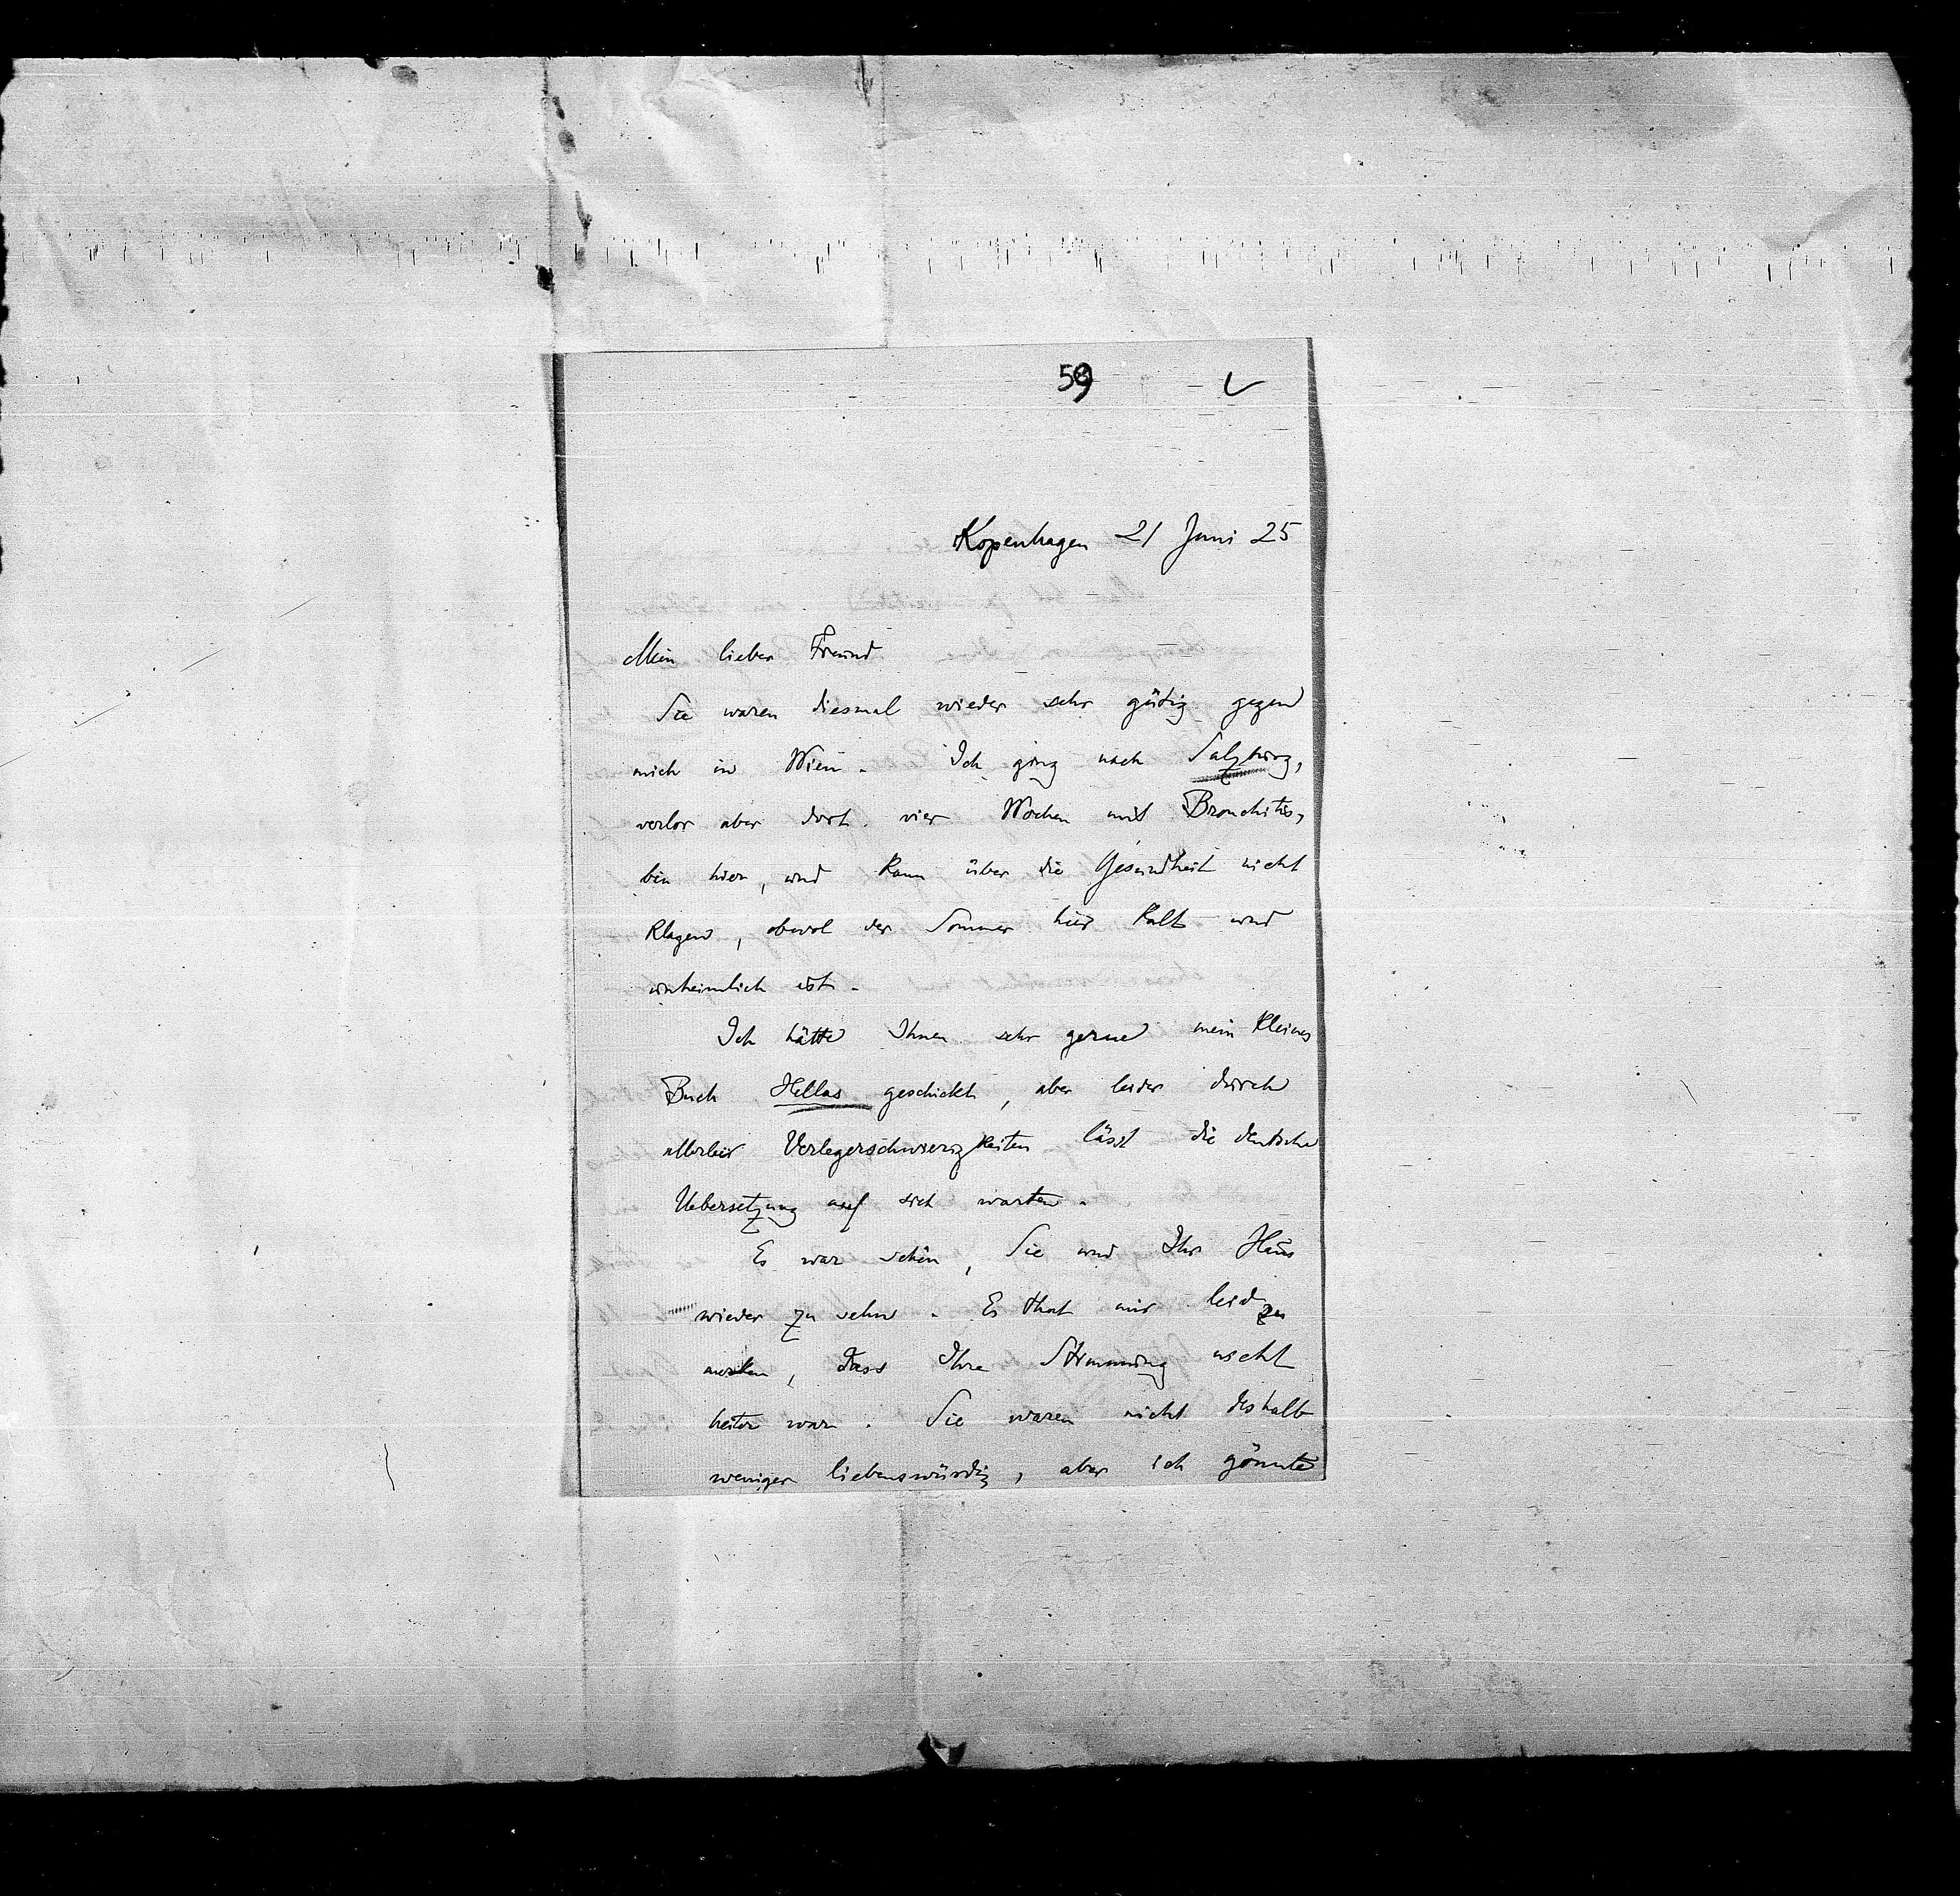 59
Kopenhagen 21 Juni 25
Mein lieber Freund
Sie waren diesmal wieder sehr gütig gegen
mich in Wien. Ich ging nach Salzburg,
verlor aber dort vier Wochen mit Bronchitis,
bin hier, und kann über die Gesundheit nicht
klagen, obwol der Sommer hier kalt und
unheimlich ist.
Ich hätte Ihnen sehr gerne mein kleines
Buch Hellas geschickt, aber leider durch
allerlei Verlegerschwierigkeiten lässt die deutsche
Uebersetzung auf sich warten.
Es war schön, Sie und Ihr Haus
wieder zu sehn. Es that mir leid zu
merken, dass Ihre Stimmung nicht
heiter war. Sie waren nicht deshalb
weniger liebenswürdig, aber ich gönnte